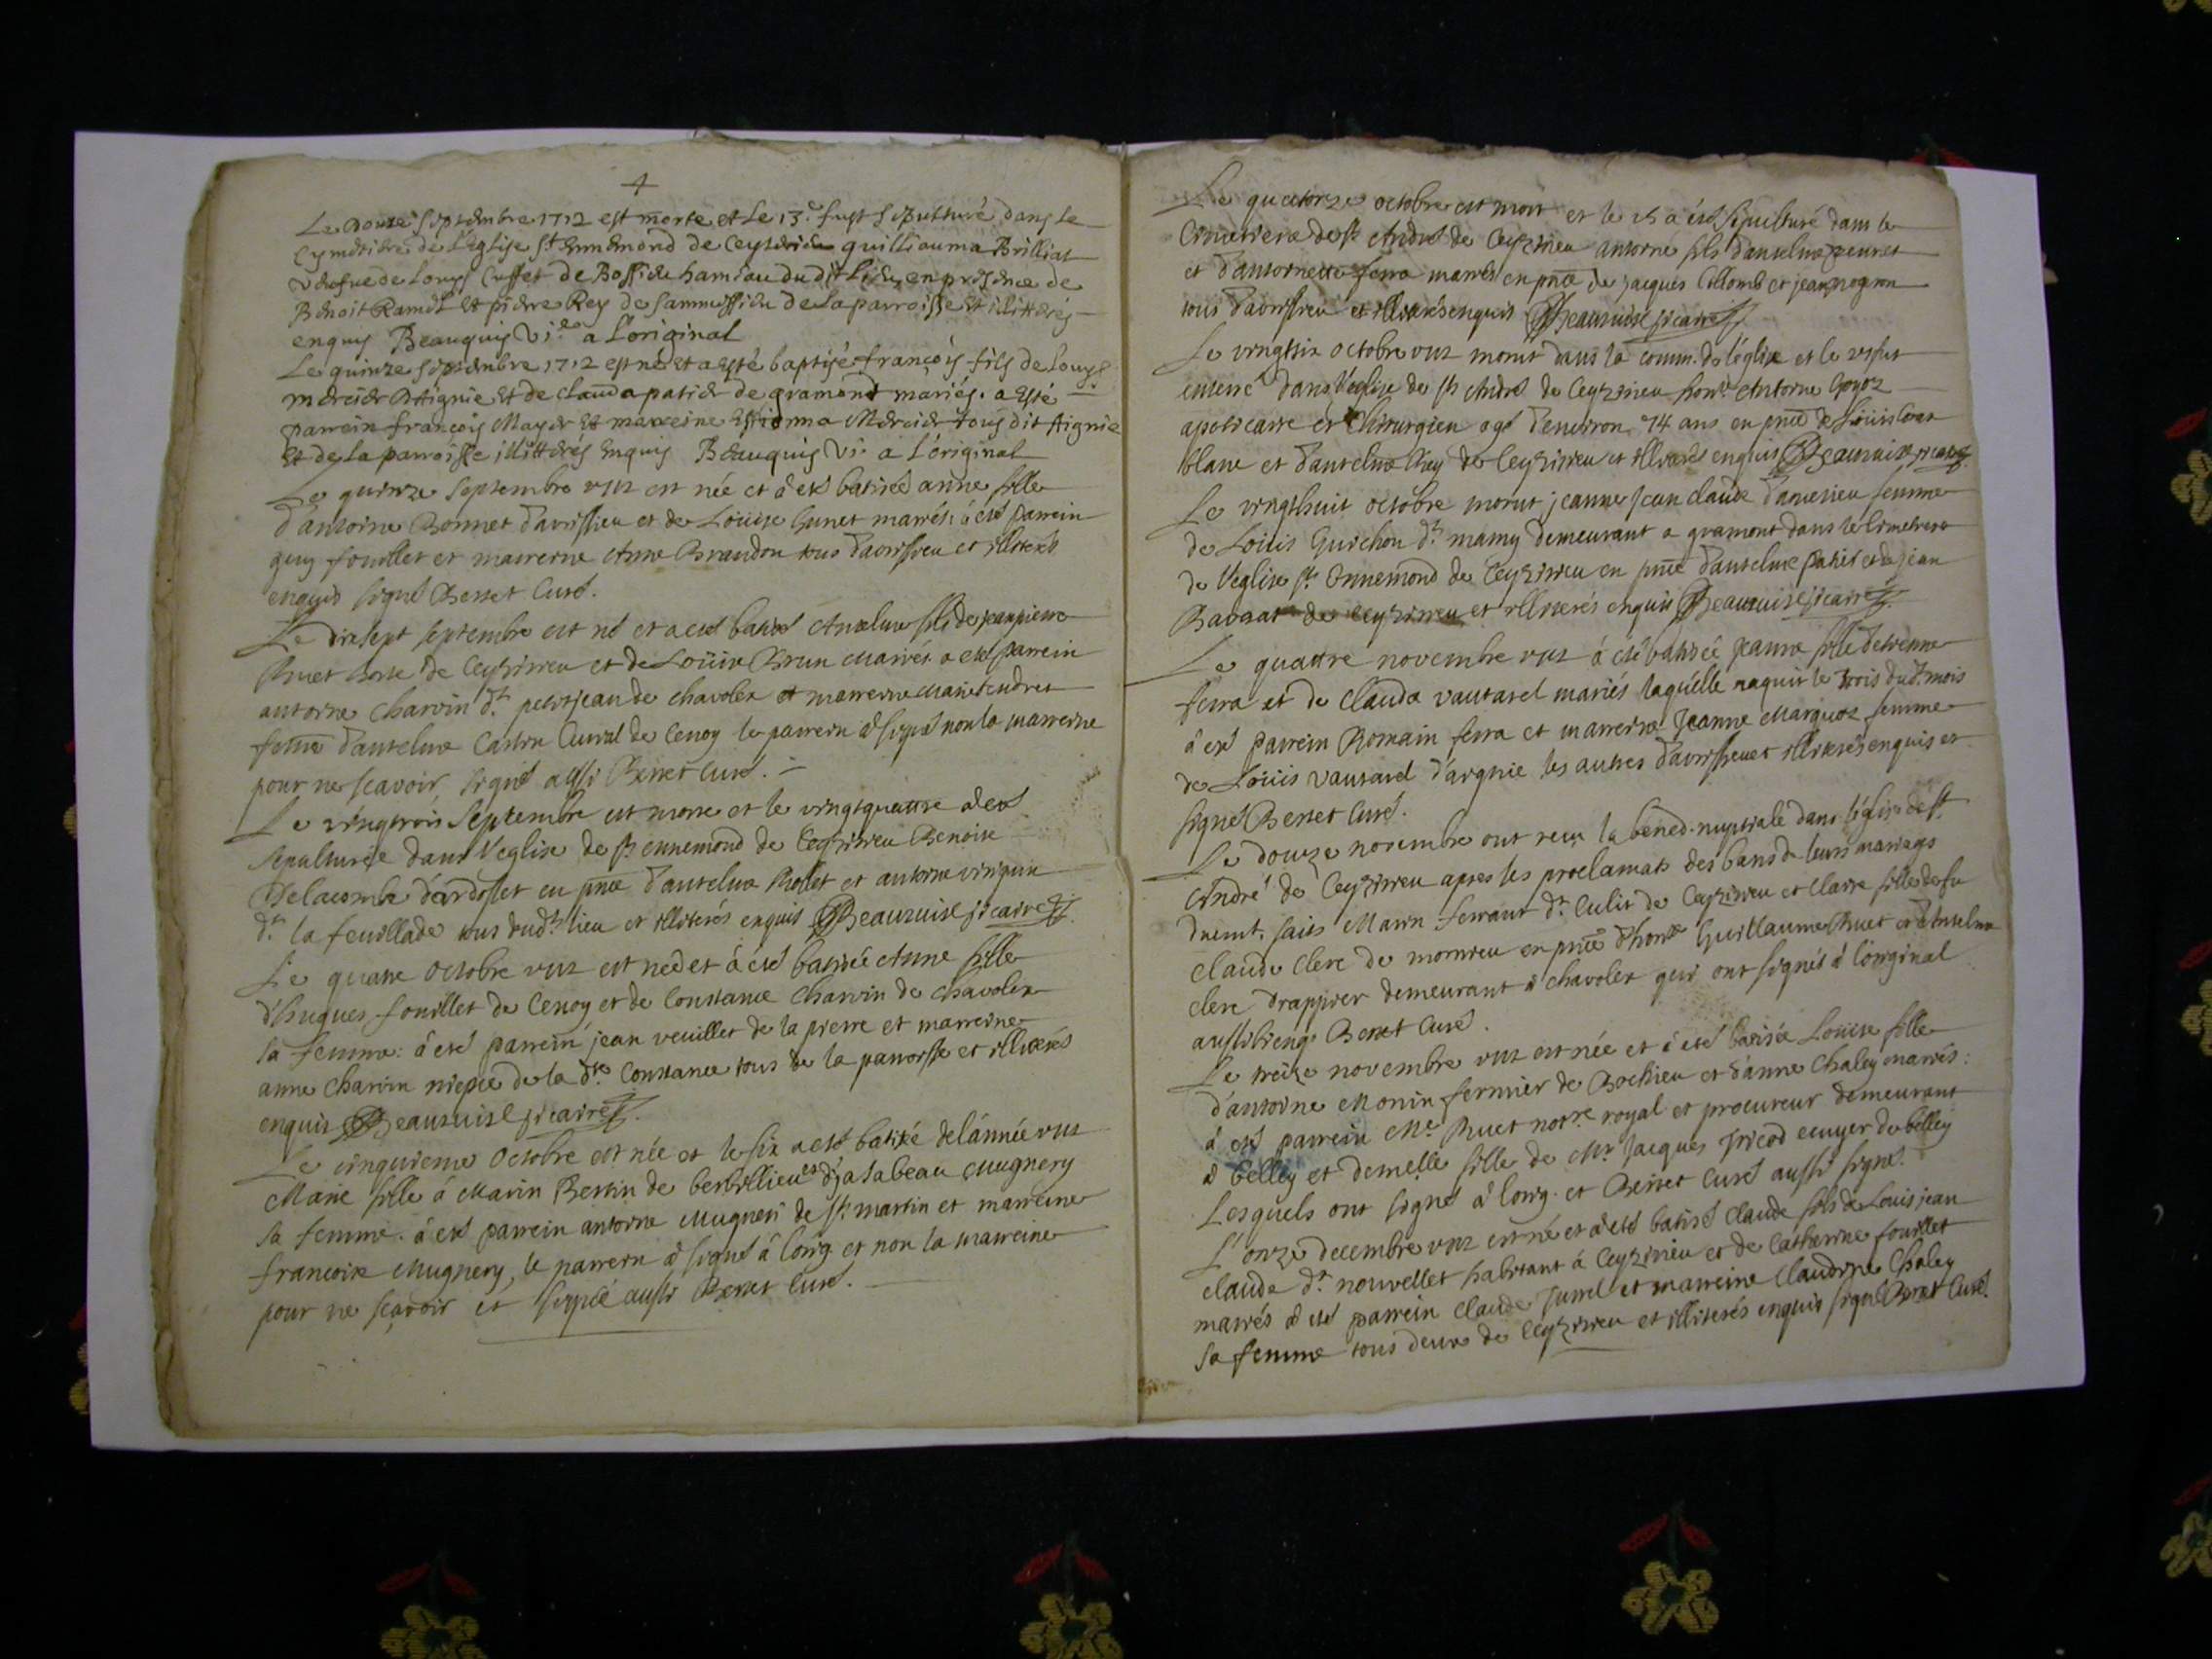 4
Le Douze septembre 1712 est morte et Le 13.e fust sepulturé dans Le
Cymetiere de L'eglise St Ennemond de Ceyserieu guilliauma Brilliat
vdefve de Louys Cusset de Bossieu hameau dudit Lieu, en presence de
Benoit Ramel Et pierre Rey de sammissieu de La parroisse Et illitterés
enquis Beauquis vi.re a L'original
Le quinze septembre 1712 est né et a esté baptisé françois fils de Louys
mercier D'Aignie Et de Clauda patier de gramond mariés. a Esté
parrein françois Mayer Et marreine Estienna Mercier tous dit Aignie
Et de La parroisse illitterés Enquis Beauquis vi. a L'original
Le quinze septembre 1712 est née et a eté batisée anne fille
d'antoine Bonnet d'avrissieu et de Loüise Gunet mariés. a eté parrein
guy fouillet et marreine Anne Brandon tous d'avrissieu et illiterés
enquis signé Berret Curé.
Le dixsept septembre est né et a eté batisé Anselme fils de jean pierre
Ruet Borse de Ceyzirieu et de Loüise Brun Mariés a eté parrein
antoine Charvin dt. petitjean de chavolex et marreine Marie
femme d'anselme Castin Curial de Cenoy le parrein a signé non la marreine
pour ne scavoir, signé aussi Berret Curé.
Le vingttrois septembre est morte et le vingtquattre a eté
sepulturée dans l'eglise de st. ennemond de Ceyzirieu Benoite
Delacombe d'ardosset en pnce d'anselme Rollet et antoine
dt. la feuillade tous dudt. lieu et illiterés enquis Beauxuise vicaire
Le quatre Octobre 1712 est née et a eté batisée Anne fille
d'hugues fouillet de Cenoy et de Constance Charvin de Chavolex
sa femme: a eté parrein jean veuillet de la pierre et marreine
anne Charvin niepce de la dte. Constance tous de la parroisse et illiterés
enquis Beauxuise vicaire.
Le cinquieme Octobre est née et le six a eté batisée de l'année 1712
Marie fille à Marin Bertin de berbillieu et d'jasabeau Mugnery
sa femme. a eté parrein antoine Mugneri de st. martin et marreine
francoise Mugnery, le parrein a signé à l'orig. et non la marreine
pour ne sçavoir et signé aussi Berret Curé.
Le quatorze octobre est mort et le 15 a eté sepulturé dans le
Cimetiere de st André de Ceyzirieu antoine fils d'anselme
et d'antoinette ferra mariés en pnce de jacques Collomb et jean pognon
tous d'avrissieu et illiterés enquis Beauxuise vicaire
Le vingtsix octobre 1712 morut dans la comm. de l'église et le 27 fut
enterré dans l'eglise de st André de Ceyzirieu hon.le Antoine Goyoz
apoticaire et Chirurgien agé d'environ 74 ans en pnce de Loüis
blanc et d'anselme Rey de Ceyzirieu et illiterés enquis Beauxuise vicaire
Le vingthuit octobre morut jeanne jean claude d'ameisieu femme
de Loüis Guichon dt. mamy demeurant a gramont dans le Cimetiere
de l'eglise st. Ennemond de Ceyzirieu en pnce d'anselme Patier et de jean
Babaat de Ceyzirieu et illiterés enquis Beauxuise vicaire
Le quattre novembre 1712 a eté batisée jeanne fille d'etienne
ferra et de Clauda vautarel mariés laquelle naquit le trois dudt. mois
a eté parrein Romain ferra et marreine jeanne Marquoz femme
de Loüis vautarel d'argnie les autres d'avrissieu et illiterés enquis et
signé Berret Curé.
Le douze novembre ont reçu la bened. nuptiale dans l'église de st.
André de Ceyzirieu apres les proclamats des bans de leurs mariages
duemt. faits Marin ferrant dt. Culit de Ceyzirieu et Claire fille de fu
Claude Clerc de mornieu en pnce d'hon.le Guillaume Ruet et d'Anselme
Clerc drappier demeurant à chavolex qui ont signés à l'original
aussi Berret Curé.
Le treize novembre 1712 est née et a eté batisée Loüise fille
d'antoine Monin fermier de Rochieu et d'anne Chaley mariés:
a eté parrein Me. Ruet not.re royal et procureur demeurant
à Belley et demelle fille de Mr. jacques Tricod ecuyer de belley
Lesquels ont signé à l'orig. et Berret Curé aussi signé.
L'onze decembre 1712 est né et a eté batisé Claude fils de Louis jean
claude dt. nouvellet habitant à Ceyzirieu et de Catherine fouillet
mariés a eté parrein Claude Juvel et marreine Claudine Chaley
sa femme tous deux de Ceyzirieu et illiterés enquis signé Berret Curé.